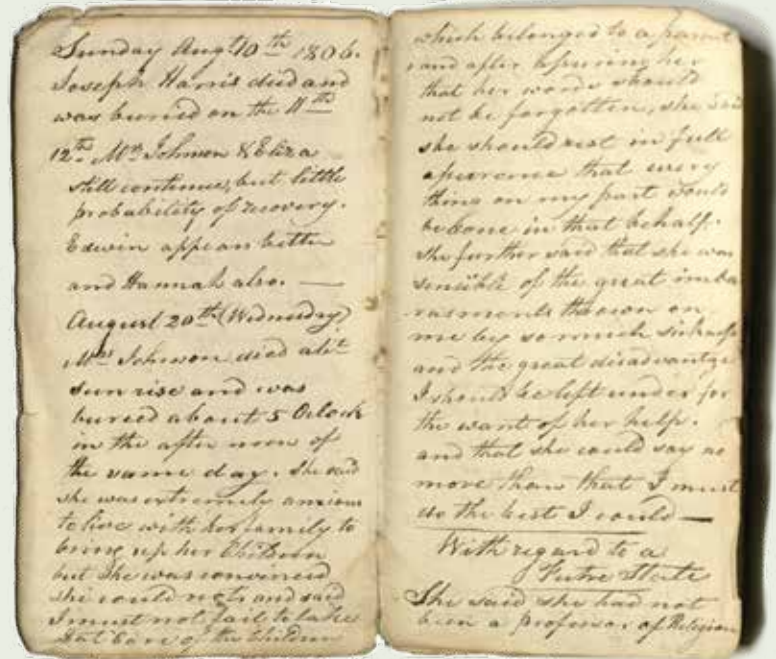 Sunday Augt 10th 1806.
Joseph Harris died and
was buried on the 11th
12th Mrs Johnson & Eliza
still continue, but little
probability of recovery.
Edwin appears better
and Hannah also. —
August 20th (Wednesday)
Mrs Johnson died abt
sun rise and was
buried about 5 Oclock
in the after noon of
the same day. She said
she was extremely anxious
to live with her family to
bring up her Children
but She was convinced
she could not and said
I must not fail to take
care of the Children
which belonged to a parent
and after assuring her
that her words should
not be forgotten, she said
she should rest in full
assurance that every
thing on my part would
be done in that behalf.
She further said that she was
sensible of the great imba
rasments thrown on
me by so much sickness
and the great disadvantage
I should be left under for
the want of her help.
and that she could say no
more than that I must
do the best I could —
With regard to a
Future State
She said she had not
been a professor of Religion